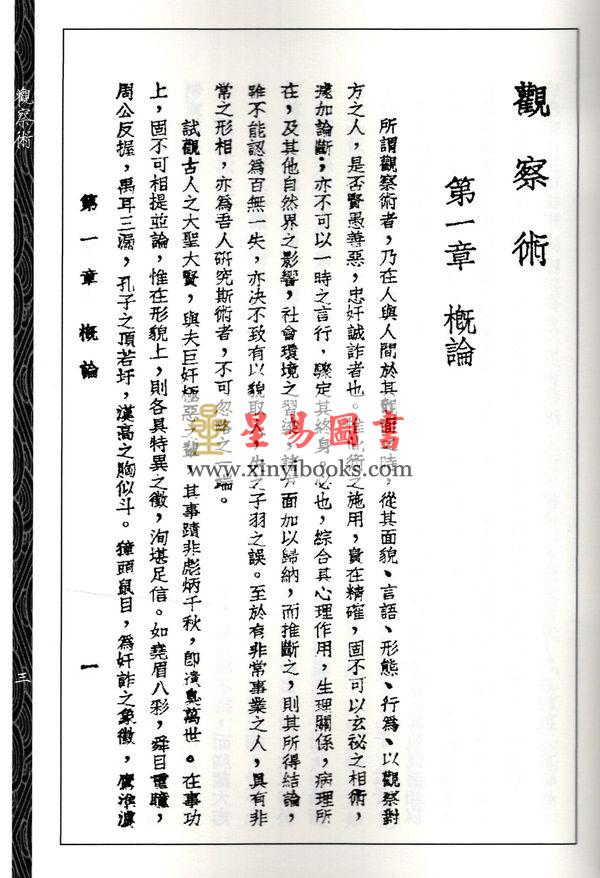 觀察術
第一章 概論
所謂觀察術者，乃在人與人間於其觀面之時，從其面貌、言語、形態、行為、以觀察對
方之人，是否賢愚善惡，忠奸誠詐者也。惟此術之施用，貴在精確，固不可以玄秘之相術，
遽加論斷；亦不可以一時之言行，驟定其終身。必也，綜合其心理作用，生理關係，病理所
在，及其他自然界之影響，社會環境之習染，諸方面加以歸納，而推斷之，則其所得結論，
雖不能認為百無一失，亦決不致有以貌取人，失之子羽之誤。至於有非常事業之人，具有非
常之形相，亦為吾人研究斯術者，不可忽略之一端。
試觀古人之大聖大賢，與夫巨奸極惡之輩，其事蹟非彪炳千秋，即遺臭萬世。在事功
上，固不可相提並論，惟在形貌上，則各具特異之徵，洵堪足信。如堯眉八彩，舜目重瞳，
周公反握，禹耳三漏，孔子之頂若圩，漢高之胸似斗。獐頭鼠目，為奸詐之象徵，鷹準
觀察術
第一章 概論
一
三
星易圖書
www.xinyibooks.com